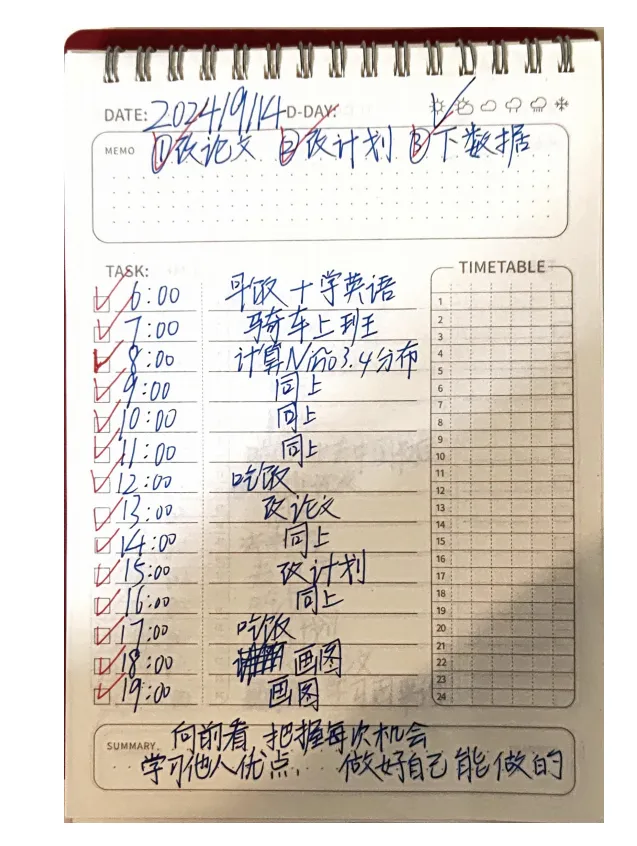 DATE: 2024/9/14 D-DAY:
MEMO ①改论文 ②改计划 ③下数据
TASK:
6:00 早饭+学英语
7:00 骑车上班
8:00 计算N 3.4分布
9:00 同上
10:00 同上
11:00 同上
12:00 吃饭
13:00 改论文
14:00 同上
15:00 改计划
16:00 同上
17:00 吃饭
18:00 画图
19:00 画图
TIMETABLE
1
2
3
4
5
6
7
8
9
10
11
12
13
14
15
16
17
18
19
20
21
22
23
24
SUMMARY. 向前看 把握每次机会
学习他人优点 做好自己能做的